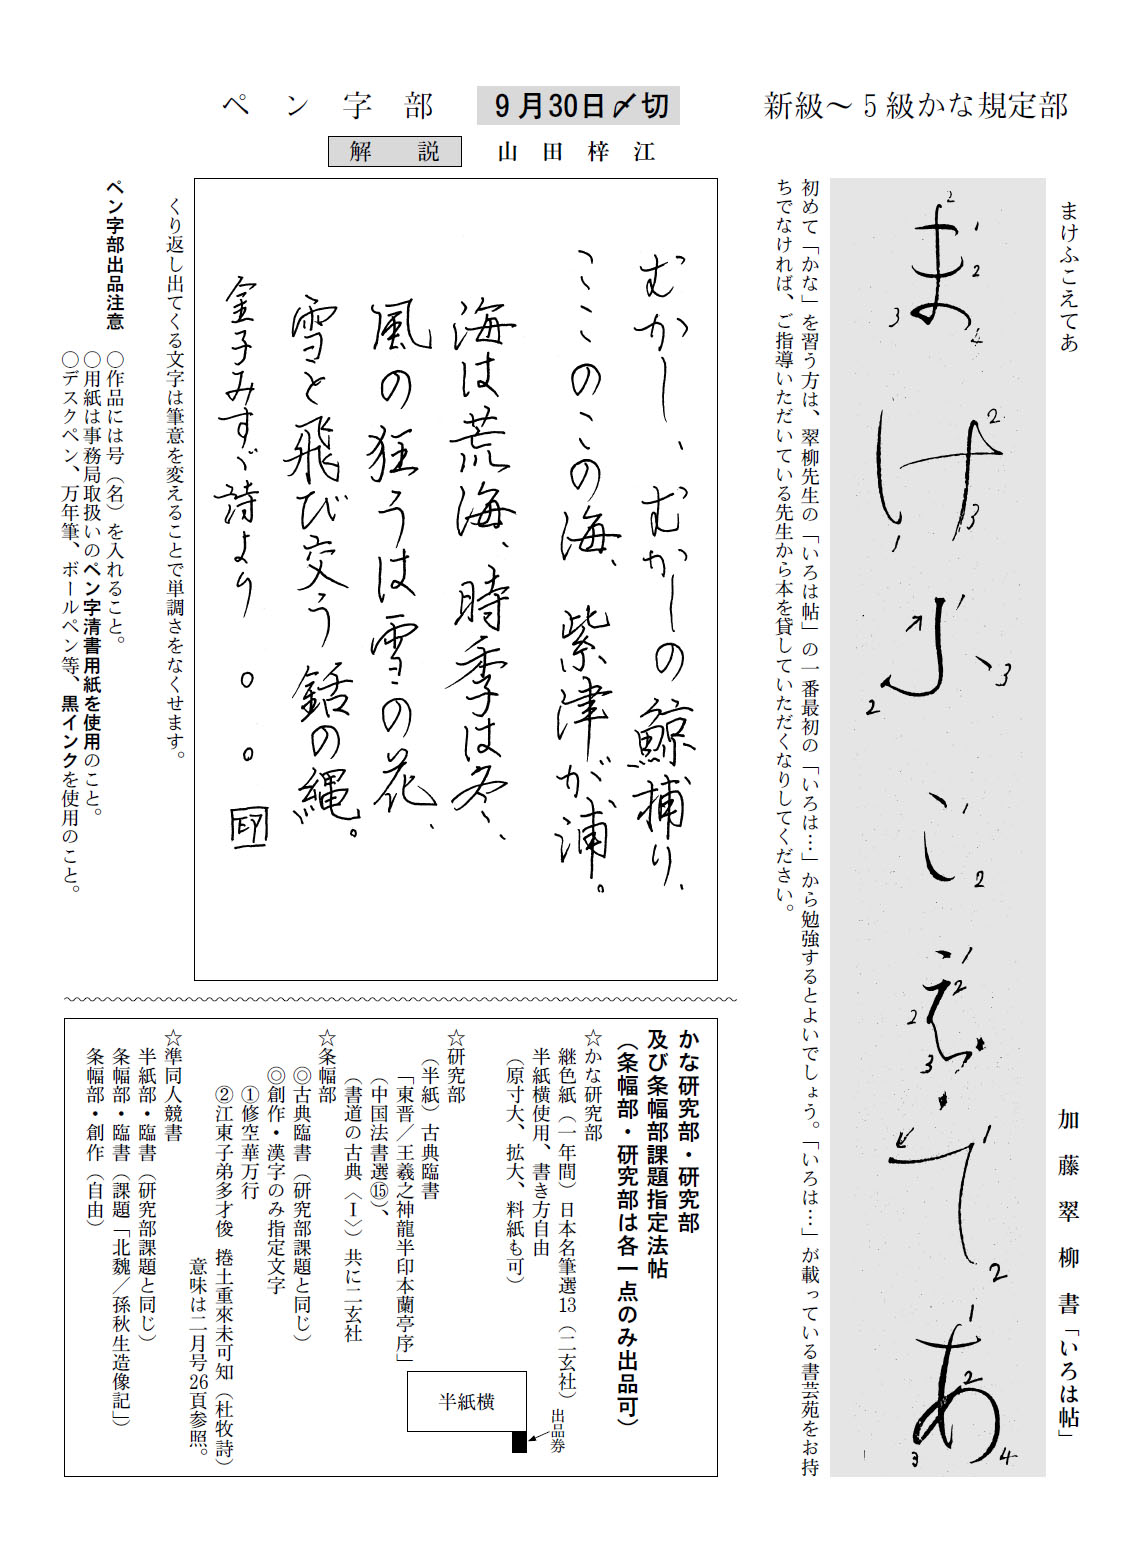 新級〜5級かな規定部
まけふこえてあ
加藤翠柳書「いろは帖」
まけふこえてあ
初めて「かな」を習う方は、翠柳先生の「いろは帖」の一番最初の「いろは…」から勉強するとよいでしょう。「いろは…」が載っている書芸苑をお持
ちでなければ、ご指導いただいている先生から本を貸していただくなりしてください。
ペン字部
9月30日〆切
解説 山田梓江
むかし、むかしの鯨捕り、
ここのこの海、紫津が浦。
海は荒海、時季は冬、
風の狂うは雪の花、
雪と飛び交う銛の縄。
金子みすゞ詩より 。。印
くり返し出てくる文字は筆意を変えることで単調さをなくせます。
ペン字部出品注意 ○作品には号（名）を入れること。
○用紙は事務局取扱いのペン字清書用紙を使用のこと。
○デスクペン、万年筆、ボールペン等、黒インクを使用のこと。
かな研究部・研究部
及び条幅部課題指定法帖
（条幅部・研究部は各一点のみ出品可）
☆かな研究部
継色紙（一年間）日本名筆選13（二玄社）
半紙横使用、書き方自由
（原寸大、拡大、料紙も可）
半紙横
出品券
☆研究部
（半紙）古典臨書
「東晋／王羲之神龍半印本蘭亭序」
（中国法書選⑮）、
（書道の古典〈Ⅰ〉）共に二玄社
☆条幅部
◎古典臨書（研究部課題と同じ）
◎創作・漢字のみ指定文字
①修空華万行
②江東子弟多才俊 捲土重來未可知（杜牧詩）
意味は二月号26頁参照。
☆準同人競書
半紙部・臨書（研究部課題と同じ）
条幅部・臨書（課題「北魏／孫秋生造像記」）
条幅部・創作（自由）